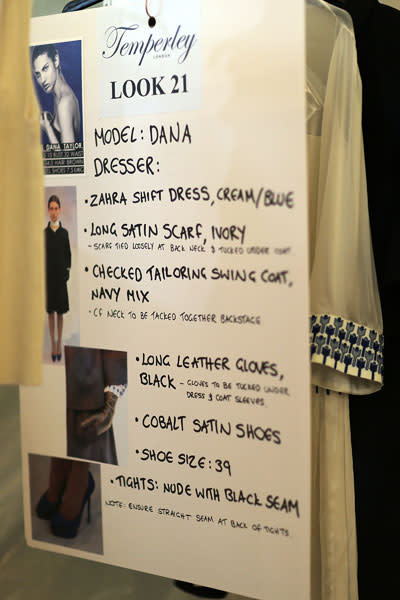 Temperley
LONDON
LOOK 21
DANA TAYLOR
MODEL: DANA
DRESSER:
• ZAHRA SHIFT DRESS, CREAM/BLUE
• LONG SATIN SCARF, IVORY
- SCARF TIED LOOSELY AT BACK NECK & TUCKED UNDER COAT
• CHECKED TAILORING SWING COAT,
NAVY MIX
- CF NECK TO BE TACKED TOGETHER BACKSTAGE
• LONG LEATHER GLOVES,
BLACK - GLOVES TO BE TUCKED UNDER
DRESS & COAT SLEEVES.
• COBALT SATIN SHOES
• SHOE SIZE: 39
• TIGHTS: NUDE WITH BLACK SEAM
NOTE: ENSURE STRAIGHT SEAM AT BACK OF TIGHTS